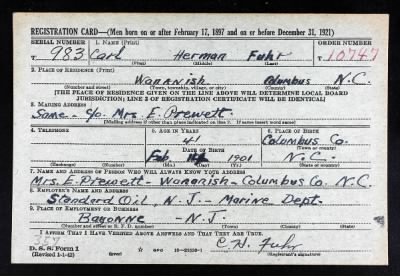 REGISTRATION CARD—(Men born on or after February 17, 1897 and on or before December 31, 1921)
SERIAL NUMBER 1. NAME (Print) ORDER NUMBER
T 983 Carl Herman Fuhr T 10747
(First) (Middle) (Last)
2. PLACE OF RESIDENCE (Print)
Wananish Columbus N.C.
(Number and street) (Town, township, village, or city) (County) (State)
[THE PLACE OF RESIDENCE GIVEN ON THE LINE ABOVE WILL DETERMINE LOCAL BOARD
JURISDICTION; LINE 2 OF REGISTRATION CERTIFICATE WILL BE IDENTICAL]
3. MAILING ADDRESS
Same - c/o Mrs E. Prewett
[Mailing address if other than place indicated on line 2. If same insert word same]
4. TELEPHONE 5. AGE IN YEARS 6. PLACE OF BIRTH
41 Columbus Co.
DATE OF BIRTH (Town or county)
Feb. 1901 N.C.
(Exchange) (Number) (Mo.) (Day) (Yr.) (State or country)
7. NAME AND ADDRESS OF PERSON WHO WILL ALWAYS KNOW YOUR ADDRESS
Mrs E. Prewett - Wananish - Columbus Co. N.C.
8. EMPLOYER'S NAME AND ADDRESS
Standard Oil - N.J. - Marine Dept.
9. PLACE OF EMPLOYMENT OR BUSINESS
Bayonne - N.J.
(Number and street or R. F. D. number) (Town) (County) (State)
I AFFIRM THAT I HAVE VERIFIED ABOVE ANSWERS AND THAT THEY ARE TRUE.
D. S. S. Form 1 C. H. Fuhr
(Revised 1-1-42) (over) GPO 16—21630-1 (Registrant's signature)